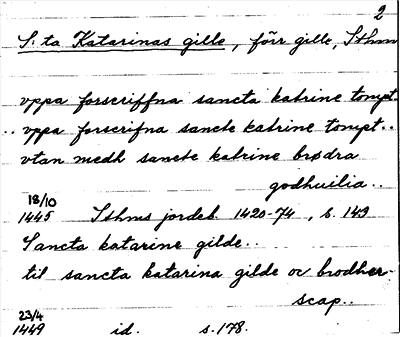 2
S:ta Katarinas gille, förr gille, Sthm
vppa forscriffna sancta katrine tompt.
.. vppa forscrifna sancte katrine tompt..
vtan medh sancte katrine brødra
godhuilia..
18/10
1445 Sthms jordeb. 1420-74, s. 149
Sancta katarine gilde..
til sancta katarina gilde oc brodher-
scap..
23/4
1449 id. s. 178.